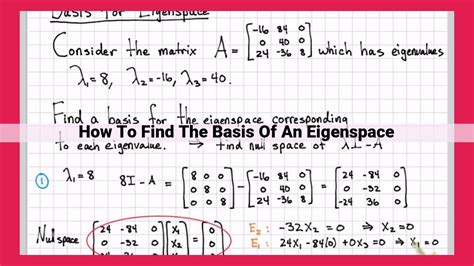 Basis for Eigenspace
Consider the matrix A = [-16 84 0; 0 40 0; 24 -36 8] which has eigenvalues
λ₁=8, λ₂=-16, λ₃=40.
Find a basis for the eigenspace corresponding
How To Find The Basis Of An Eigenspace
to each eigenvalue. → find null space of λI-A
① λ₁=8 8I-A = [8 0 0; 0 8 0; 0 0 8] - [-16 84 0; 0 40 0; 24 -36 8] = [24 -84 0; 0 -32 0; -24 36 0]
Null space [24 -84 0; 0 -32 0] [x₁; x₂] = [0; 0] E₂: -32x₂ = 0 ⇒ x₂=0
E₁: 24x₁-84(0)+0x₃=0 ⇒ x₁=0